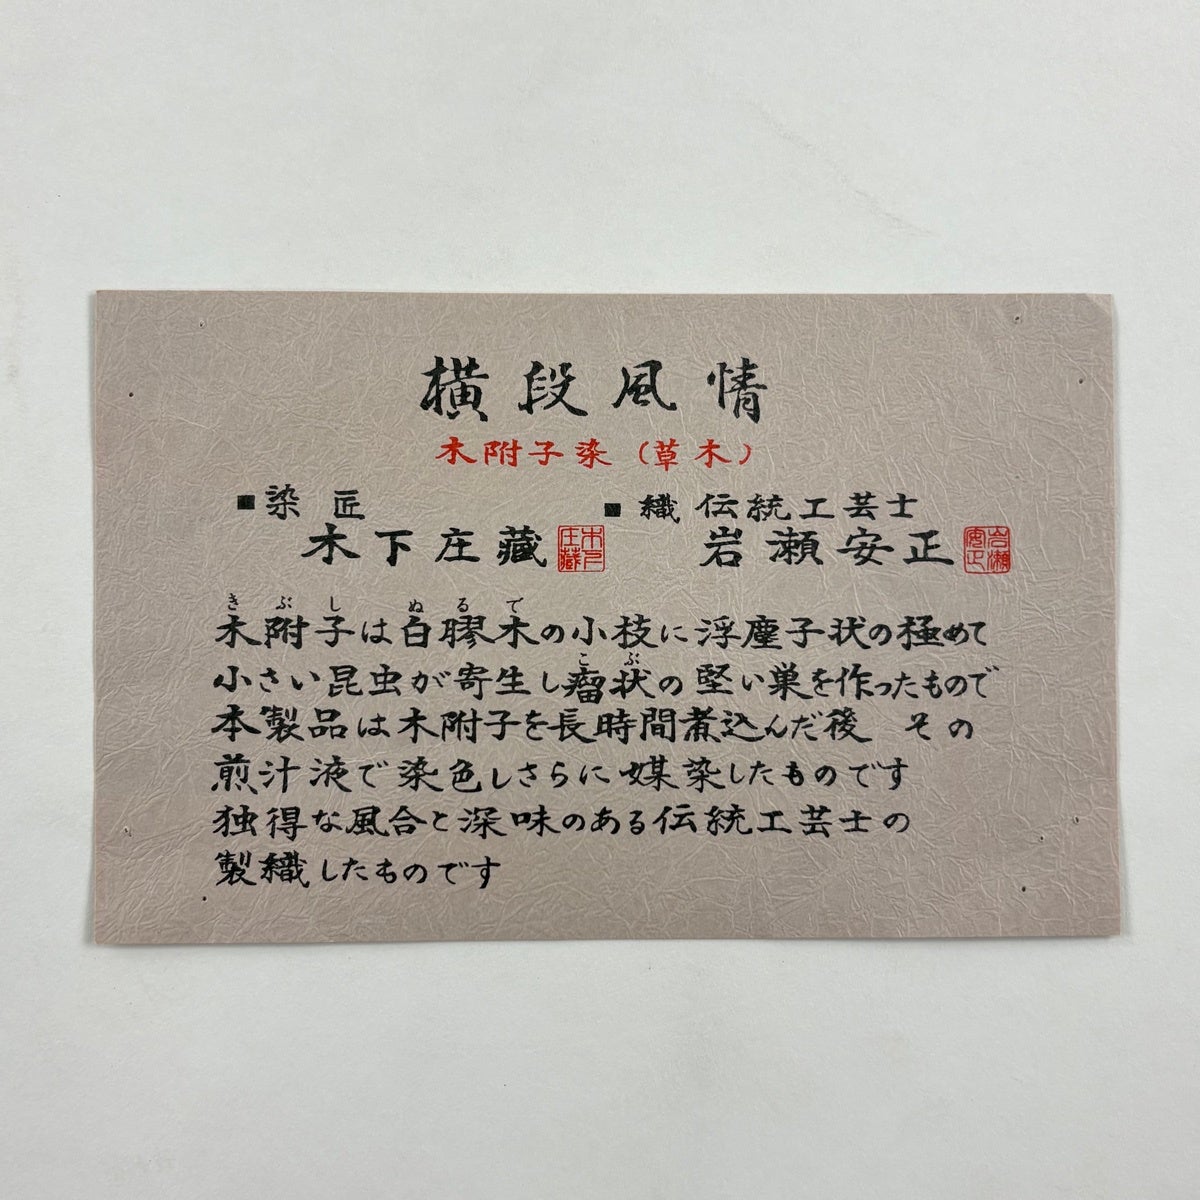 横段風情
木附子染（草木）
■染匠
木下庄藏 木下庄藏
■織伝統工芸士
岩瀬安正 岩瀬安正
きぶし ぬるで
木附子は白膠木の小枝に浮塵子状の極めて
こぶ
小さい昆虫が寄生し瘤状の堅い巣を作ったもので
本製品は木附子を長時間煮込んだ後 その
煎汁液で染色しさらに媒染したものです
独得な風合と深味のある伝統工芸士の
製織したものです